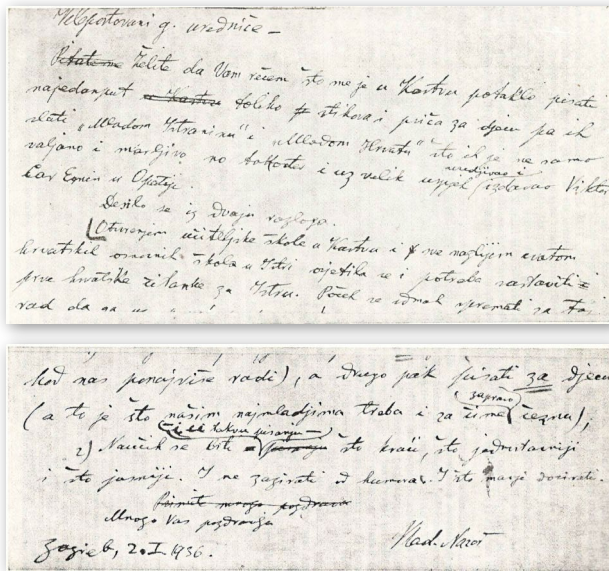 Velepoštovani g. uredniče –
Pitate me Želite da Vam rečem što me je u Kastvu potaklo pisati
najedanput u Kastvu toliko stihova i priča za djecu pa ih
slati „Mladom Istraninu" i „Mladom Hrvatu" što ih je ne samo
valjano i marljivo no također i uz velik uspjeh uredjivao i izdavao Viktor
Car Emin u Opatiji.
Desilo se iz dvaju razloga.
Otvorenjem učiteljske škole u Kastvu i sve naglijim cvatom
hrvatskih osnovnih škola u Istri osjetila se i potreba sastaviti
prve hrvatske čitanke za Istru. Počeh se odmah spremati za taj
rad da
kod nas ponajviše radi), a drugo pak pisati za djecu
(a to je što našim najmladjima treba i za čime zapravo čeznu),
2) Naučih se biti u takvu pisanju što kraći, što jednostavniji
i što jasniji. I ne zazirati od humora. I što manje docirati.
Primite mnogo pozdrava
Mnogo Vas pozdravlja
Zagreb, 2. I. 1936. Vlad. Nazor